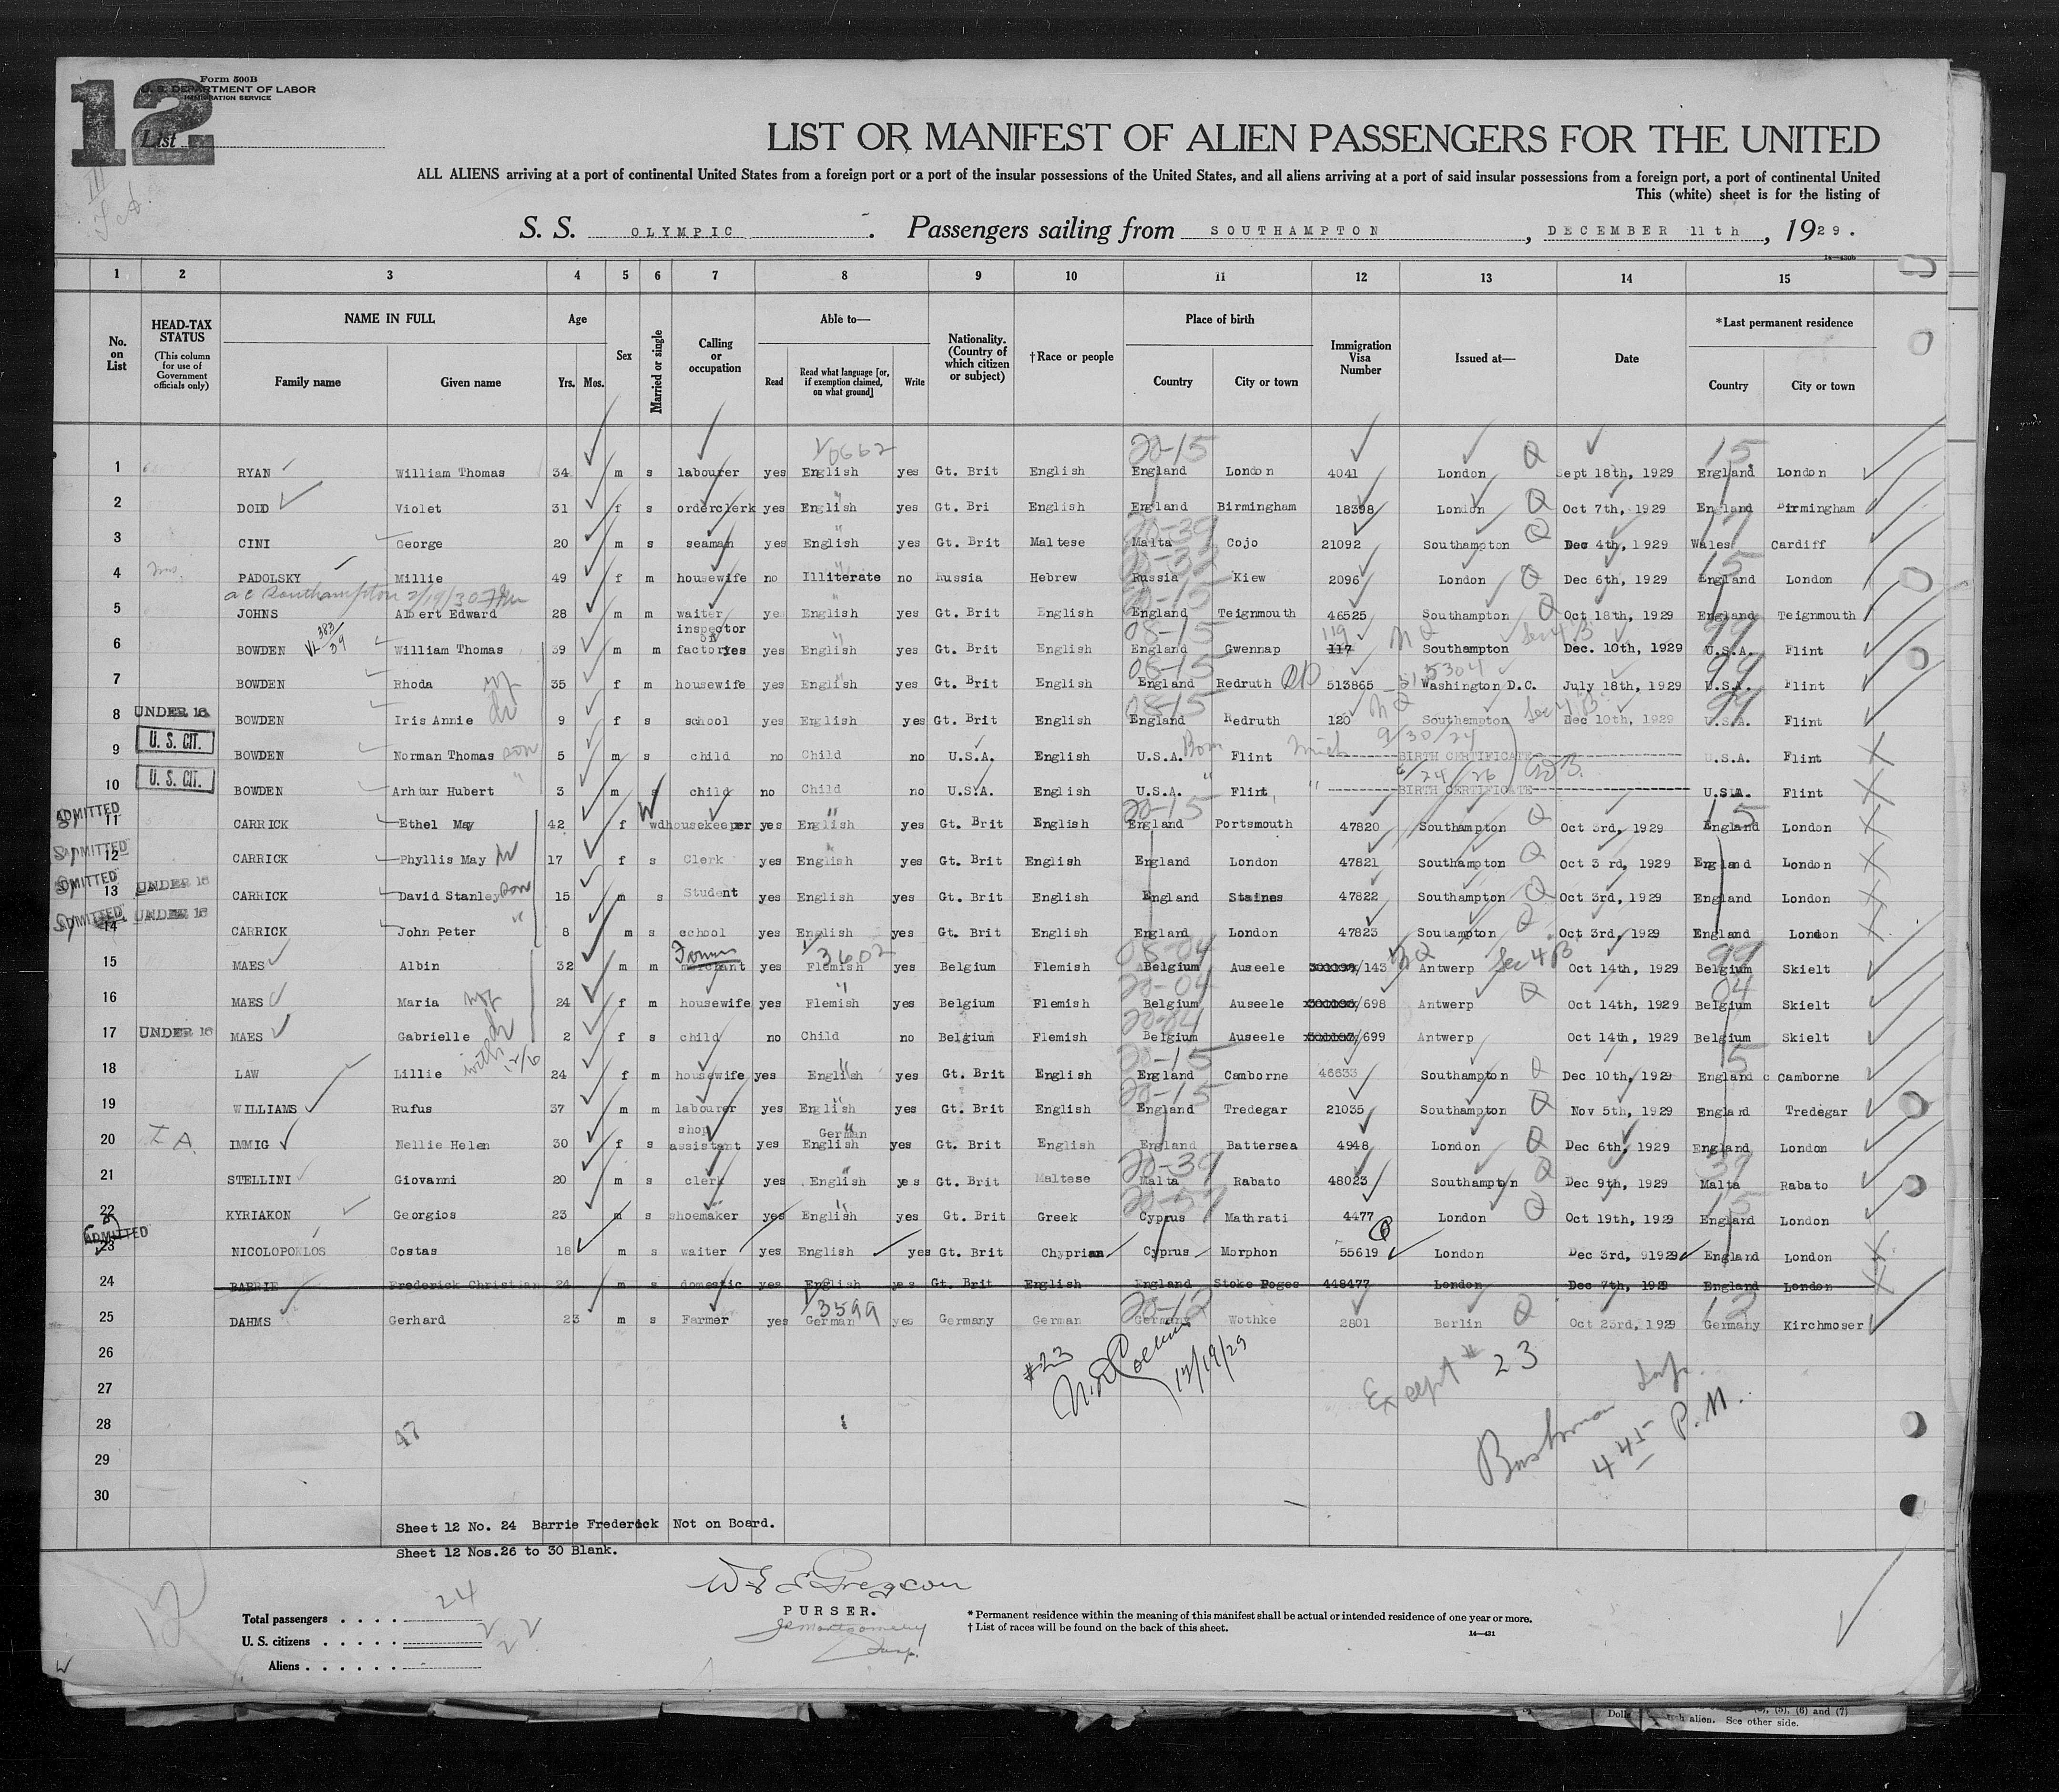 12
Form 500B
U. S. DEPARTMENT OF LABOR
IMMIGRATION SERVICE
List
LIST OR MANIFEST OF ALIEN PASSENGERS FOR THE UNITED
ALL ALIENS arriving at a port of continental United States from a foreign port or a port of the insular possessions of the United States, and all aliens arriving at a port of said insular possessions from a foreign port, a port of continental United
This (white) sheet is for the listing of
S. S. OLYMPIC. Passengers sailing from SOUTHAMPTON, DECEMBER 11th, 1929.
1 2 3 4 5 6 7 8 9 10 11 12 13 14 15
No. on List HEAD-TAX STATUS (This column for use of Government officials only) NAME IN FULL Family name Given name Age Yrs. Mos. Sex Married or single Calling or occupation Able to— Read Read what language [or, if exemption claimed, on what ground] Write Nationality. (Country of which citizen or subject) †Race or people Place of birth Country City or town Immigration Visa Number Issued at— Date *Last permanent residence Country City or town
V6662 20-15 Q 15
1 RYAN William Thomas 34 m s labourer yes English yes Gt. Brit English England London 4041 London Sept 18th, 1929 England London
2 DODD Violet 31 f s orderclerk yes English yes Gt. Bri English England Birmingham 18398 London Q Oct 7th, 1929 England Birmingham
20-39 17
3 CINI George 20 m s seaman yes English yes Gt. Brit Maltese Malta Cojo 21092 Southampton Q Dec 4th, 1929 Wales Cardiff
15
4 PADOLSKY Millie 49 f m housewife no Illiterate no Russia Hebrew Russia Kiew 2096 London Q Dec 6th, 1929 England London
a c Southampton 2/19/30
20-15
5 JOHNS Albert Edward 28 m m waiter yes English yes Gt. Brit English England Teignmouth 46525 Southampton Q Oct 18th, 1929 England Teignmouth
VL 383/39 inspector on 08-15 119 NQ Sec 4 B 99
6 BOWDEN William Thomas 39 m m factories yes English yes Gt. Brit English England Gwennap 117 Southampton Dec. 10th, 1929 U.S.A. Flint
08-15 99
7 BOWDEN Rhoda 35 f m housewife yes English yes Gt. Brit English England Redruth 513865 Washington D.C. July 18th, 1929 U.S.A. Flint
08-15 NQ Sec 4 B 99
8 UNDER 16 BOWDEN Iris Annie 9 f s school yes English yes Gt. Brit English England Redruth 120 Southampton Dec 10th, 1929 U.S.A. Flint
U. S. CIT. Born Mich 9/30/24
9 BOWDEN Norman Thomas son 5 m s child no Child no U.S.A. English U.S.A. Flint BIRTH CERTIFICATE U.S.A Flint
U. S. CIT. " 6/24/26
10 BOWDEN Arhtur Hubert " 3 m s child no Child no U.S.A. English U.S.A. Flint, BIRTH CERTIFICATE U.S.A. Flint
ADMITTED W 20-15 15
11 CARRICK Ethel May 42 f wd housekeeper yes English yes Gt. Brit English England Portsmouth 47820 Southampton Q Oct 3rd, 1929 England London
ADMITTED
12 CARRICK Phyllis May 17 f s Clerk yes English yes Gt. Brit English England London 47821 Southampton Q Oct 3 rd, 1929 England London
ADMITTED
13 UNDER 16 CARRICK David Stanley son 15 m s Student yes English yes Gt. Brit English England Staines 47822 Southampton Q Oct 3rd, 1929 England London
ADMITTED UNDER 16
14 CARRICK John Peter " 8 m s school yes English yes Gt. Brit English England London 47823 Soutampton Q Oct 3rd, 1929 England London
Farmer 3602 08-04 NQ Sec 4 B 99
15 MAES Albin 32 m m merchant yes Flemish yes Belgium Flemish Belgium Auseele /143 Antwerp Oct 14th, 1929 Belgium Skielt
20-04 04
16 MAES Maria 24 f m housewife yes Flemish yes Belgium Flemish Belgium Auseele /698 Antwerp Q Oct 14th, 1929 Belgium Skielt
20-04
17 UNDER 16 MAES Gabrielle 2 f s child no Child no Belgium Flemish Belgium Auseele /699 Antwerp Oct 14th, 1929 Belgium Skielt
with 12/6 20-15
18 LAW Lillie 24 f m housewife yes English yes Gt. Brit English England Camborne 46633 Southampton Q Dec 10th, 1929 England Camborne
20-15
19 WILLIAMS Rufus 37 m m labourer yes English yes Gt. Brit English England Tredegar 21035 Southampton Q Nov 5th, 1929 England Tredegar
shop German
20 IMMIG Nellie Helen 30 f s assistant yes English yes Gt. Brit English England Battersea 4948 London Q Dec 6th, 1929 England London
20-39 39
21 STELLINI Giovanni 20 m s clerk yes English yes Gt. Brit Maltese Malta Rabato 48023 Southampton Q Dec 9th, 1929 Malta Rabato
15
22 KYRIAKON Georgios 23 m s shoemaker yes English yes Gt. Brit Greek Cyprus Mathrati 4477 London Q Oct 19th, 1929 England London
ADMITTED
23 NICOLOPOKLOS Costas 18 m s waiter yes English yes Gt. Brit Chyprian Cyprus Morphon 55619 London Dec 3rd, 91929 England London
24 BARRIE Frederick Christian 24 m s domestic yes English yes Gt. Brit English England Stoke Poges 448477 London Dec 7th, 1929 England London
3599 20-12 12
25 DAHMS Gerhard 23 m s Farmer yes German yes Germany German Germany Wothke 2801 Berlin Q Oct 23rd, 1929 Germany Kirchmoser
26 #23 12/19/29 Except # 23
27
28 47
29 4 45 P.M.
30
Sheet 12 No. 24 Barrie Frederick Not on Board.
Sheet 12 Nos.26 to 30 Blank.
12
Total passengers .... 24
U. S. citizens ..... 2
Aliens ...... 22
PURSER.
* Permanent residence within the meaning of this manifest shall be actual or intended residence of one year or more.
† List of races will be found on the back of this sheet.
14—431
(5), (6) and (7)
alien. See other side.